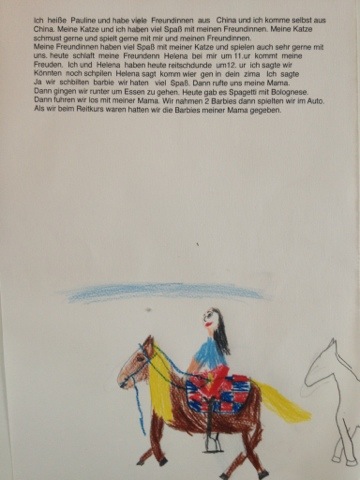 Ich heiße Pauline und habe viele Freundinnen aus China und ich komme selbst aus
China. Meine Katze und ich haben viel Spaß mit meinen Freundinnen. Meine Katze
schmust gerne und spielt gerne mit mir und meinen Freundinnen.
Meine Freundinnen haben viel Spaß mit meiner Katze und spielen auch sehr gerne mit
uns. heute schlaft meine Freundenn Helena bei mir um 11.ur kommt meine
Freuden. Ich und Helena haben heute reitschdunde um12. ur ich sagte wir
Könnten noch schpilen Helena sagt komm wier gen in dein zima Ich sagte
Ja wir schbilten barbie wir haten viel Spaß. Dann rufte uns meine Mama.
Dann gingen wir runter um Essen zu gehen. Heute gab es Spagetti mit Bolognese.
Dann fuhren wir los mit meiner Mama. Wir nahmen 2 Barbies dann spielten wir im Auto.
Als wir beim Reitkurs waren hatten wir die Barbies meiner Mama gegeben.